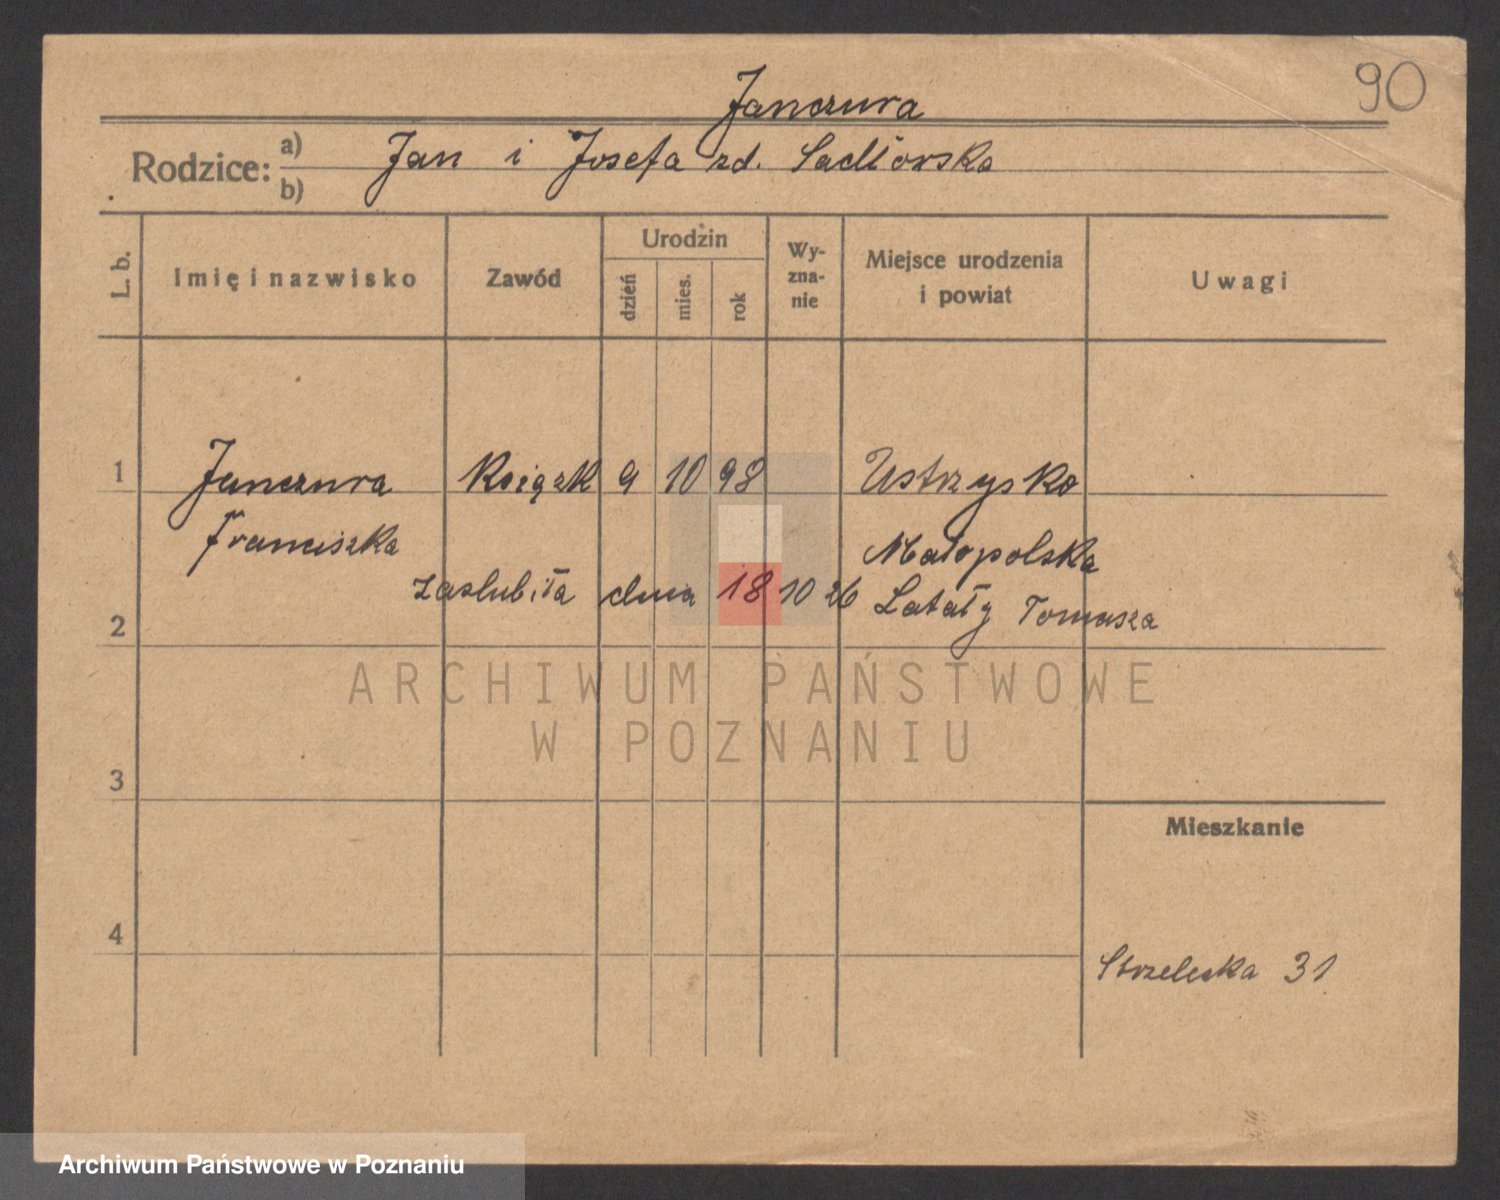 90
Janczura
Rodzice: a) Jan i Josefa zd. Sadłowska
b)
L. b. Imię i nazwisko Zawód Urodzin dzień mies. rok Wyznanie Miejsce urodzenia i powiat Uwagi
1 Janczura Książk 9 10 98 Ustrzysko
Franciszka Małopolska
zaslubiła dnia 18 10 26 Latały Tomasza
2
3
Mieszkanie
4
Strzelecka 31
ARCHIWUM PAŃSTWOWE
W POZNANIU
Archiwum Państwowe w Poznaniu